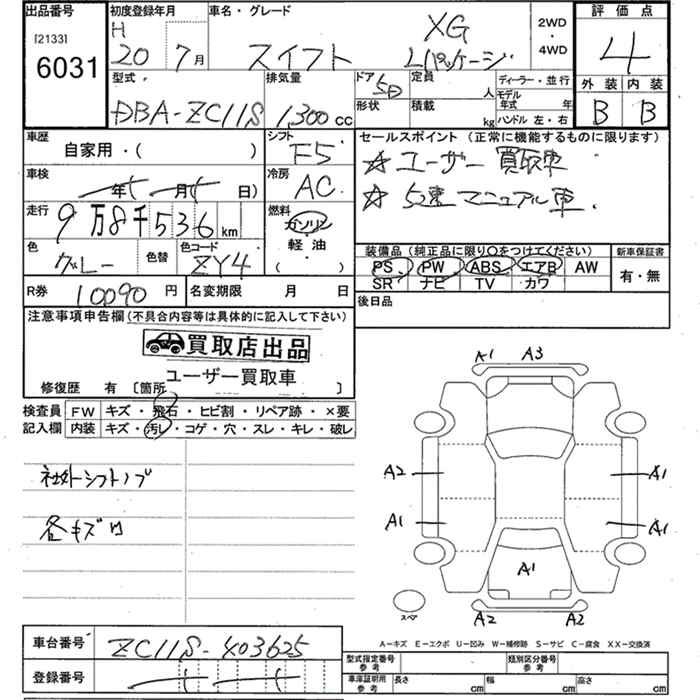 出品番号
[2133]
6031
初度登録年月
H
20 7月
車名・グレード
スイフト
XG
Lパッケージ
2WD
・
4WD
評価点
4
外装 内装
B B
型式
DBA-ZC11S
排気量
1,300cc
ドア
5D
形状
定員
人
積載
kg
ディーラー・並行
モデル年式 年
ハンドル 左・右
車歴
自家用・( )
シフト
F5
車検
年( 月( 日)
冷房
AC
走行
9万8千536km
燃料
ガソリン
軽油
( )
色
グレー
色替
色コード
ZY4
R券 10090円
名変期限 月 日
セールスポイント(正常に機能するものに限ります)
☆ユーザー買取車
☆点東マニュアル車.
装備品(純正品に限り○をつけてください)
PS PW ABS エアB AW
SR ナビ TV カワ
新車保証書
有・無
後日品
注意事項申告欄(不具合内容等は具体的に記入して下さい)
買取店出品
ユーザー買取車
修復歴 有 [箇所 ]
検査員
記入欄
FW キズ・飛石・ヒビ割・リペア跡・×要
内装 キズ・汚レ・コゲ・穴・スレ・キレ・破レ
社外シフトノブ
各キズ凹
A1 A3
A2 A1
A1 A1
A1
スペア
A2 A2
A-キズ E-エクボ U-凹み W-補修跡 S-サビ C-腐食 XX-交換済
車台番号 ZC11S-403625
登録番号
型式指定番号
参考
類別区分番号
参考
車庫証明用
参考
長さ cm 幅 cm 高さ cm